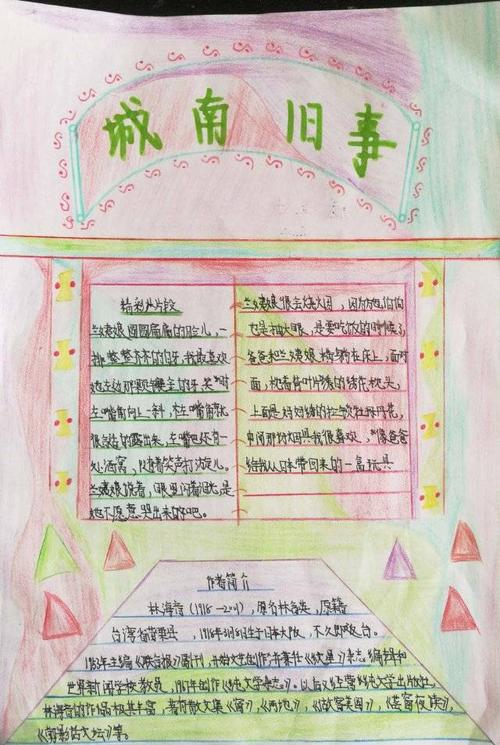 城南旧事
精彩片段
兰姨娘圆圆扁扁的脸儿,一
排整整齐齐的白牙,我最喜欢
她左边那颗镶金的牙,笑时
左嘴角向上一斜,
很 的露出来,左嘴巴还有一
处酒窝,随着笑声打漩儿。
兰姨娘说着,眼里闪着泪光是
她不愿意哭出来的吧。
兰姨娘很会烧大烟,因为
也是抽大烟,是要吃饭的时候了,
爸爸和兰姨娘横躺在床上,面对
面,枕着荷叶片绣的绣花枕头,
上面是 绣的拉 牡丹花,
中间那 烟具我很喜欢,像爸爸
给我从日本带回来的一盒玩具
作者简介
林海音(1918—2001),原名林含英,原籍
台湾省苗栗县,1918年3月 生于日本大阪,不久即返台。
主编《联合报》副刊,开始文学创作并兼任《文星》杂志编辑和
世界新闻学校教员,1967年创作《纯文学杂志》。以后又经营纯文学出版社,
林海音的作品极其丰富,著有散文集《窗》,《两地》,《做客美国》,《芸窗夜读》,
《剪影话文坛》等。